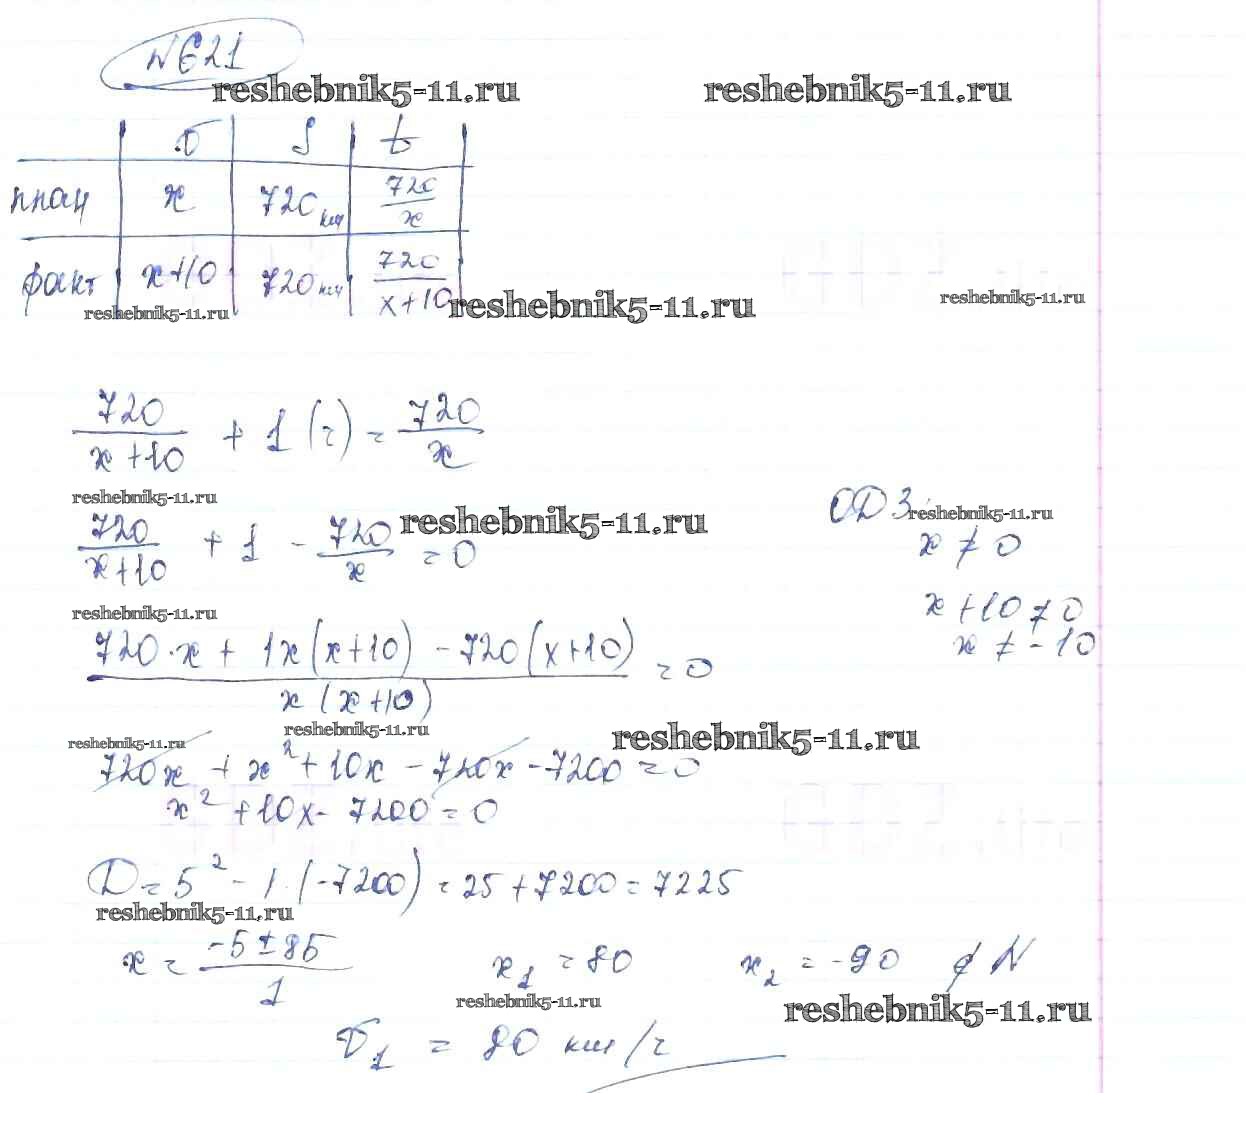 №621
reshebnik5-11.ru reshebnik5-11.ru
v S t
план x 720 км 720/x
факт x+10 720 км 720/(x+10)
reshebnik5-11.ru reshebnik5-11.ru reshebnik5-11.ru
720/(x+10) + 1 (ч) = 720/x
reshebnik5-11.ru reshebnik5-11.ru ОДЗ: reshebnik5-11.ru
720/(x+10) + 1 - 720/x = 0 x ≠ 0
reshebnik5-11.ru x+10 ≠ 0
(720·x + 1x(x+10) - 720(x+10))/(x(x+10)) = 0 x ≠ -10
reshebnik5-11.ru reshebnik5-11.ru reshebnik5-11.ru
720x + x² + 10x - 720x - 7200 = 0
x² + 10x - 7200 = 0
D = 5² - 1·(-7200) = 25 + 7200 = 7225
reshebnik5-11.ru
x = (-5 ± 85)/1 x₁ = 80 x₂ = -90 ∉ N
reshebnik5-11.ru reshebnik5-11.ru
v₁ = 80 км/ч